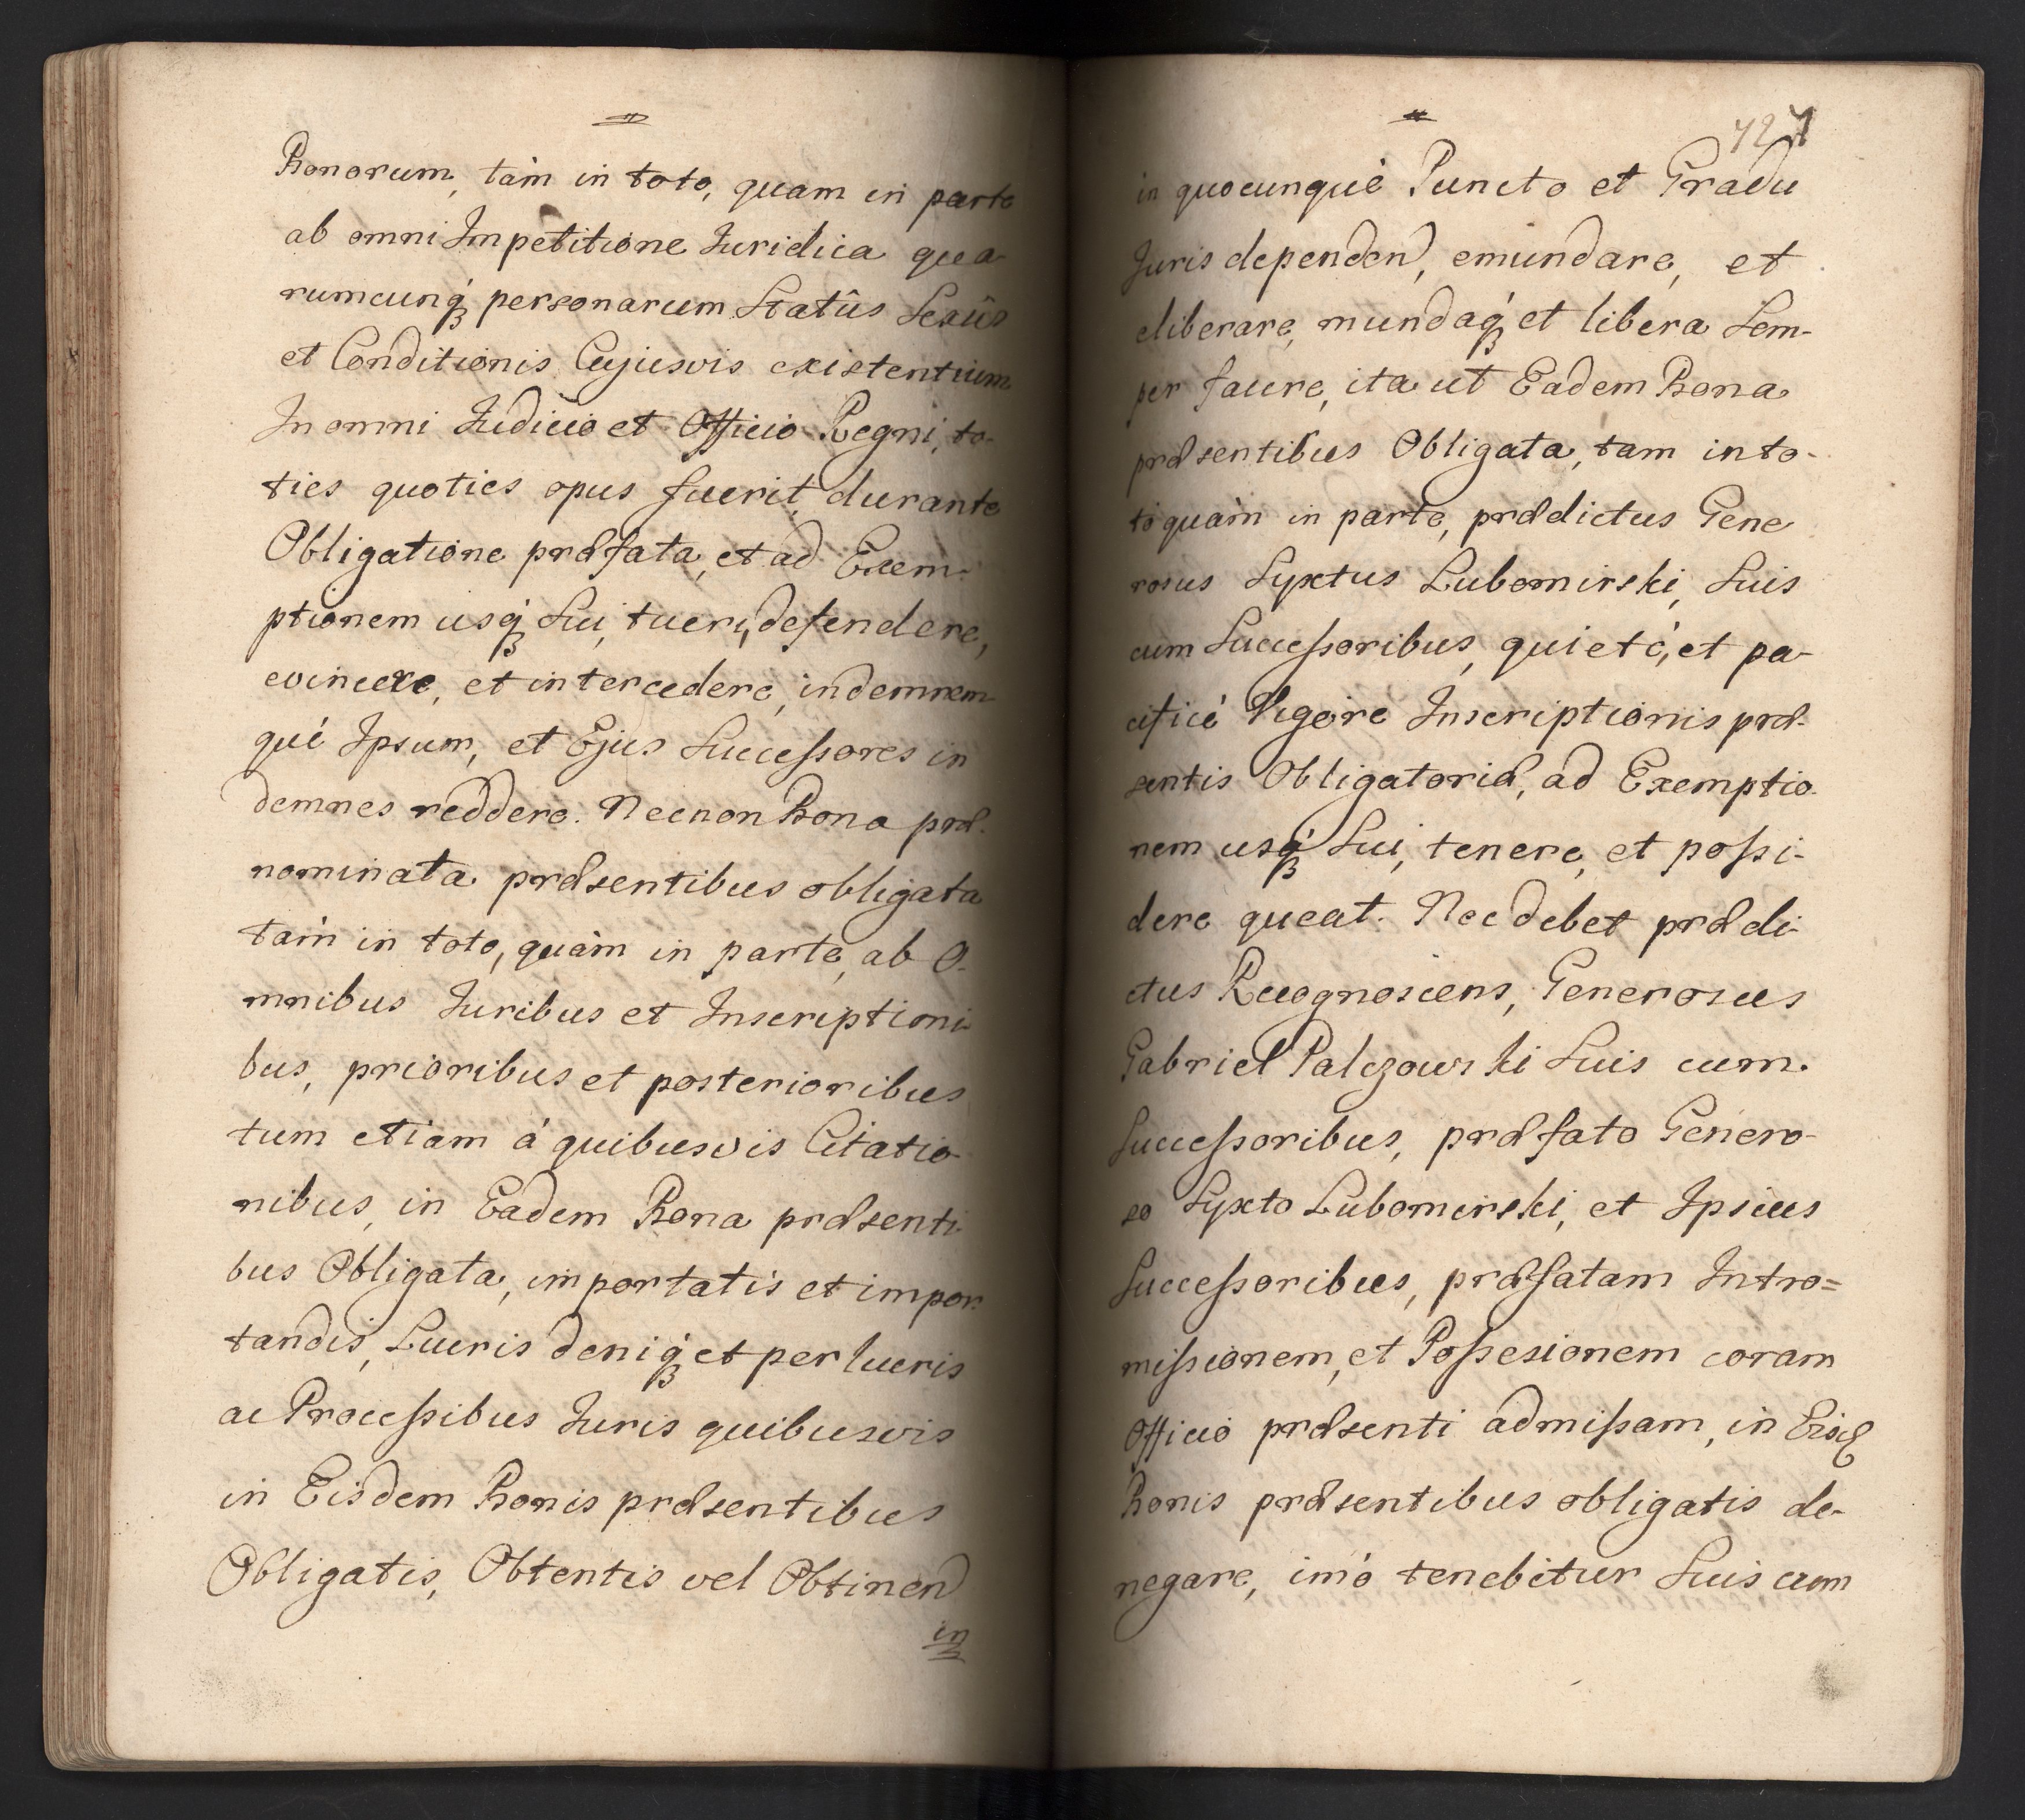 Bonorum, tàm in toto, quam in parte
ab omni Impetitione Iuridica qua
rumcunq́ꝫ personarum Statûs Sexûs
et Conditionis Cujusvis existentium
In omni Iudicio et Officio Regni, to-
ties quoties opus fuerit, durante
Obligatione præfata, et ad Exem-
ptionem usq́ꝫ Sui, tueri, defendere,
evincere, et intercedere, indemnem-
qué Ipsum, et Ejus Succeſsores in
demnes reddere. Necnon Bona præ-
nominata præsentibus obligata
tàm in toto, quàm in parte, ab O-
mnibus Iuribus et Inscriptioni-
bus, prioribus et posterioribus
tum etiam á quibusvis Citatio-
nibus, in Eadem Bona præsenti-
bus Obligata, importatis et impor-
tandis, Lucris deniq́ꝫ et perlucris
ac Proceſsibus Iuris quibusvis
in Eisdem Bonis præsentibus
Obligatis, Obtentis vel Obtinend
in
427
in quocunqué Puncto et Gradu
Iuris dependen, emundare, et
eliberare, mundaq́ꝫ et libera Sem-
per facere, ita ut Eadem Bona
præsentibus Obligata, tam in to-
to quàm in parte, prædictus Gene
rosus Syxtus Lubomirski, Suis
cum Succeſsoribus, quieté, et pa-
cificé Vigore Inscriptionis præ-
sentis Obligatoriæ, ad Exemptio-
nem usq́ꝫ Sui, tenere, et poſsi-
dere queat. Nec debet prædi-
ctus Recognoscens, Generosus
Gabriel Palczowski Suis cum
Succeſsoribus, præfato Genero-
so Syxto Lubomirski, et Ipsius
Succeſsoribus, præfatam Intro=
miſsionem, et Poſsesionem coram
Officio præsenti admiſsam, in Eisd
Bonis præsentibus obligatis de-
negare, imó tenebitur Suis cum